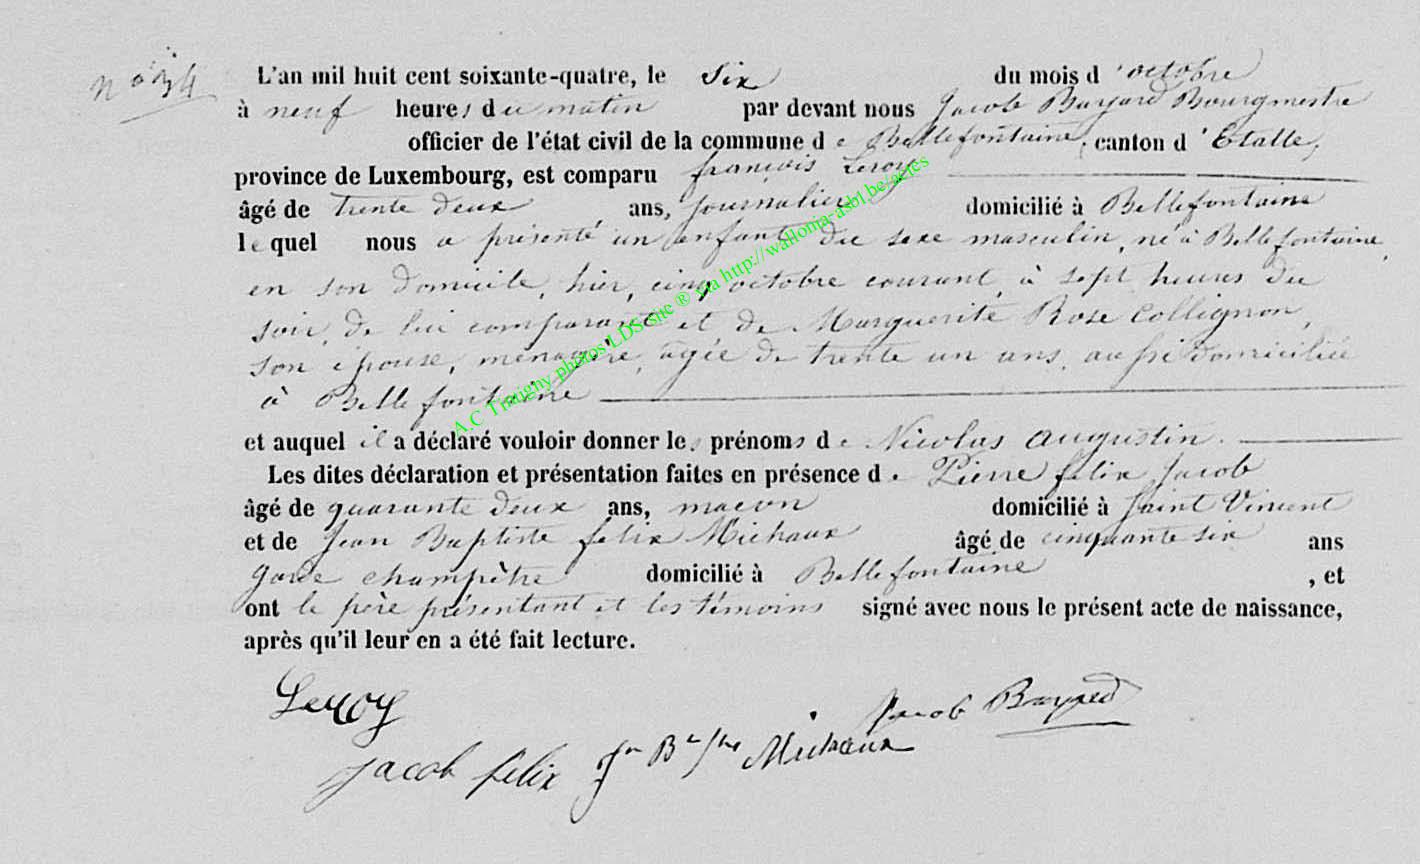 n° 34
L'an mil huit cent soixante-quatre, le six du mois d'octobre
à neuf heures du matin par devant nous Jacob Bayard Bourgmestre
officier de l'état civil de la commune de Bellefontaine, canton d'Etalle,
province de Luxembourg, est comparu françois Leroy
âgé de trente deux ans, journalier, domicilié à Bellefontaine
lequel nous a présenté un enfant du sexe masculin, né à Bellefontaine,
en son domicile, hier, cinq octobre courant, à sept heures du
soir, de lui comparant et de Marguerite Rose Collignon,
son épouse, ménagère, agée de trente un ans, aussi domiciliée
à Bellefontaine
et auquel il a déclaré vouloir donner les prénoms de Nicolas augustin.
Les dites déclaration et présentation faites en présence de Pierre felix Jacob
âgé de quarante deux ans, macon domicilié à Saint Vincent
et de Jean Baptiste felix Michaux âgé de cinquante six ans
garde champêtre domicilié à Bellefontaine, et
ont le père présentant et les témoins signé avec nous le présent acte de naissance,
après qu'il leur en a été fait lecture.
Leroy
Jacob Bayard
Jacob felix Jn Bte Michaux
A.C Tintigny photos LDS site ® via http://wallonia-asbl.be/actes